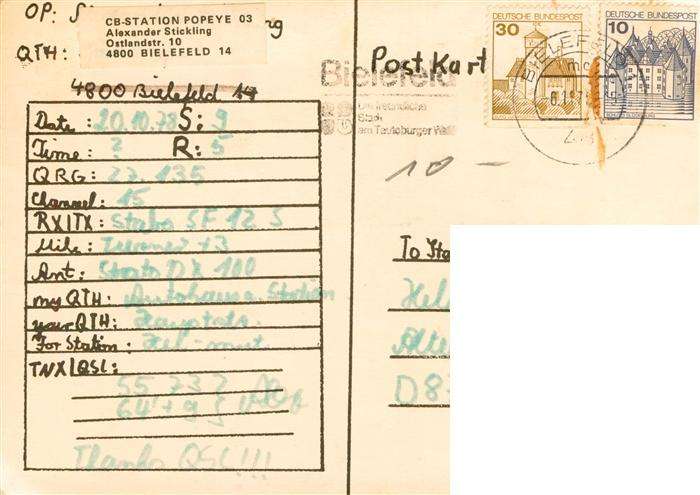 OP: S ng
CB-STATION POPEYE 03
Alexander Stickling
Ostlandstr. 10
4800 BIELEFELD 14
QTH:
4800 Bielefeld 14
Date: 20.10.78 S: 9
Time: ? R: 5
QRG: 27.135
Channel: 15
RX/TX: Stabo SF 12 S
Mike: Turner +3
Ant: DX 100
my QTH: Station
your QTH:
For Station: Hel-mut
TNX/QSL: 55, 73?
64 + 9
Thanks QSL!!!
Post Kart
Bielefeld
Die freundliche
Stadt
am Teutoburger Wald
30 DEUTSCHE BUNDESPOST
10 DEUTSCHE BUNDESPOST
BIELEFELD
10 -
To Sta
Hel
Alte
D 8